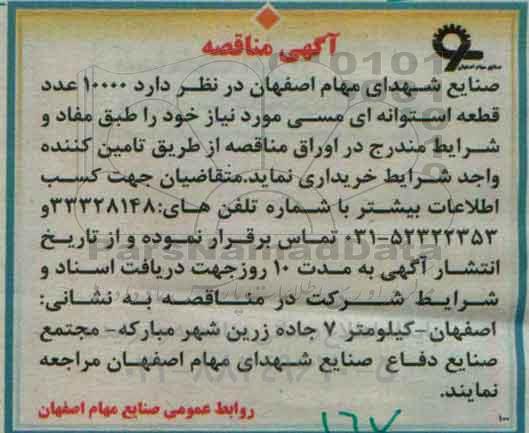 آگهی مناقصه
صنایع مهام اصفهان
صنایع شهدای مهام اصفهان در نظر دارد ۱۰۰۰۰ عدد
قطعه استوانه ای مسی مورد نیاز خود را طبق مفاد و
شرایط مندرج در اوراق مناقصه از طریق تامین کننده
واجد شرایط خریداری نماید.متقاضیان جهت کسب
اطلاعات بیشتر با شماره تلفن های:۳۳۳۲۸۱۴۸و
۵۲۳۲۲۳۵۳-۰۳۱ تماس برقرار نموده و از تاریخ
انتشار آگهی به مدت ۱۰ روزجهت دریافت اسناد و
شرایط شرکت در مناقصه به نشانی:
اصفهان-کیلومتر ۷ جاده زرین شهر مبارکه- مجتمع
صنایع دفاع صنایع شهدای مهام اصفهان مراجعه
نمایند.
روابط عمومی صنایع مهام اصفهان
۱۰۰
۱۶۷
ParsNamadData